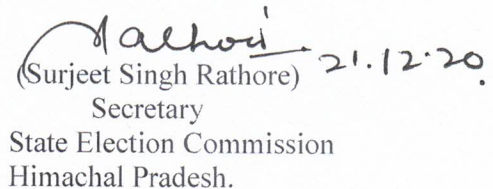 Rathore 21.12.20
(Surjeet Singh Rathore)
Secretary
State Election Commission
Himachal Pradesh.